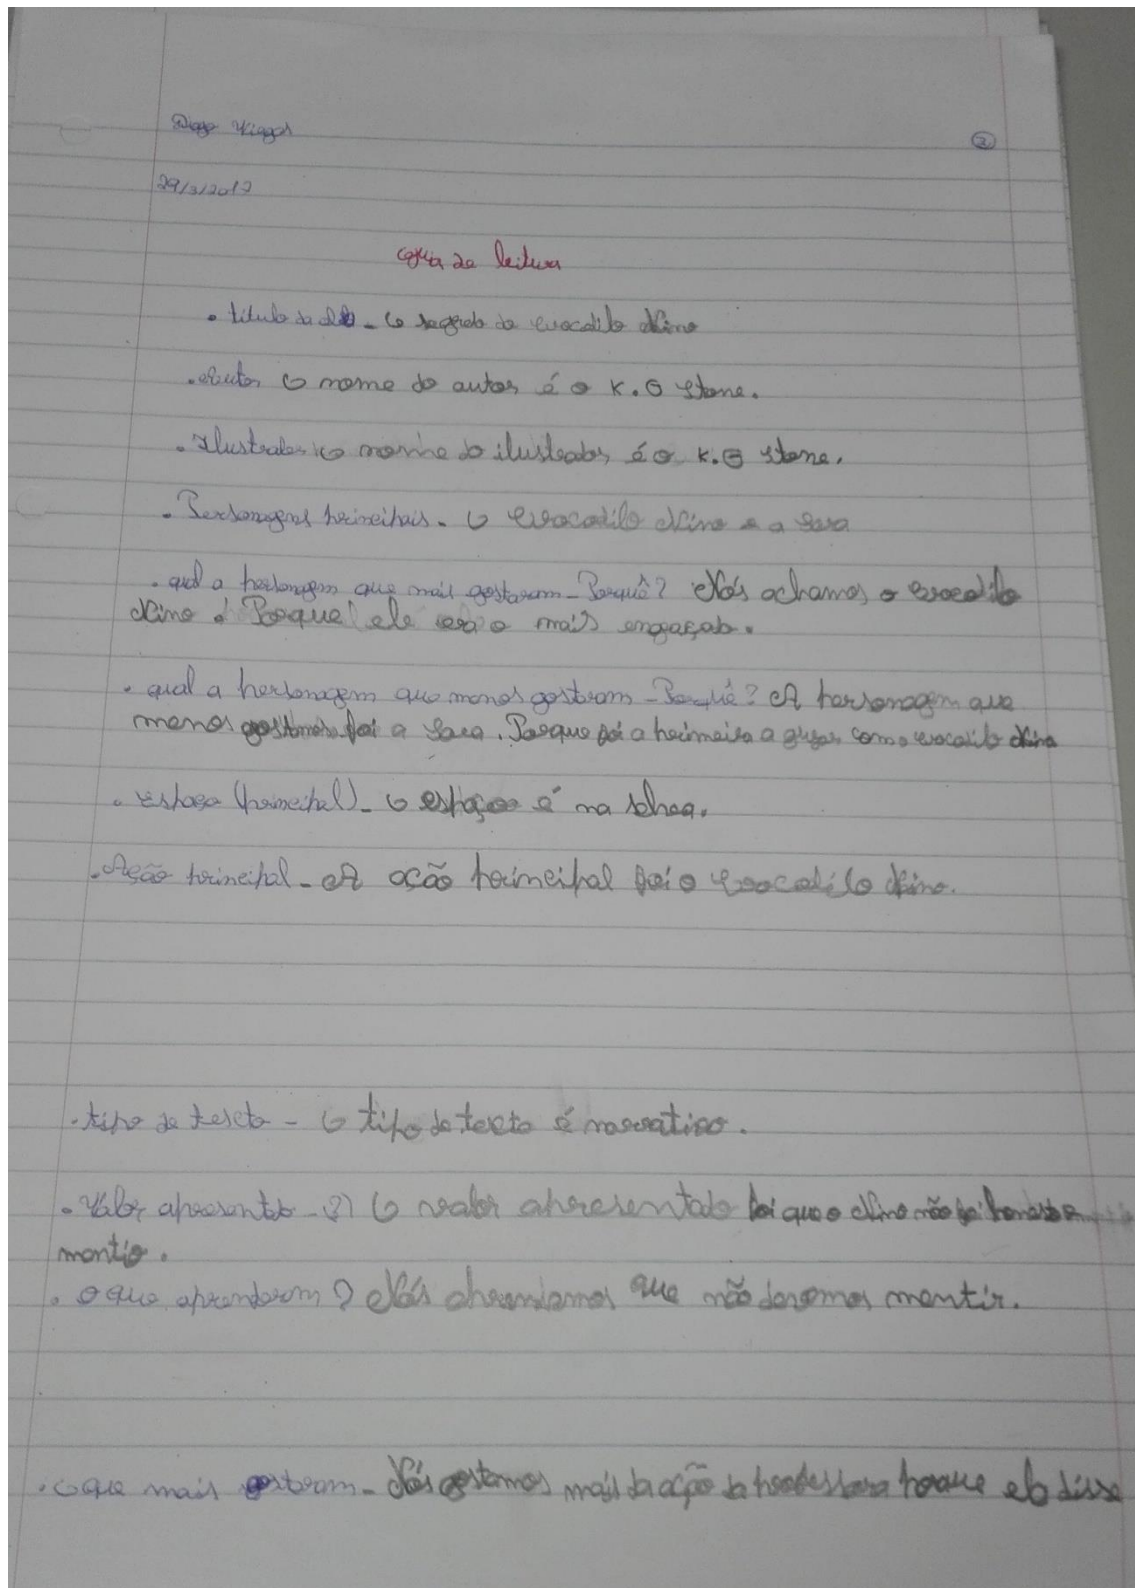 Diogo Viegas
②
29/3/2017
Guia de leitura
• titulo da obra - O segredo do crocodilo Nino
• Autor O nome do autor é o K.O Stone.
• Ilustrador O nome do ilustrador é o K.O Stone.
• Personagens principais - O Crocodilo Nino e a Sara
• qual a personagem que mais gostaram - Porquê? Nós achamos o crocodilo
Nino. Porque ele era o mais engraçado.
• qual a personagem que menos gostaram - Porquê? A personagem que
menos gostamos foi a Sara. Porque foi a primeira a com o crocodilo Nino
• Espaço (principal) - O espaço é na selva.
• Ação principal - A ação principal foi o Crocodilo Nino.
• tipo de texto - O tipo de texto é narrativo.
• Valor apresentado - O valor apresentado foi que o Nino não foi honesto e
mentio.
• O que aprenderam? Nós aprendemos que não devemos mentir.
• O que mais gostaram - Nós gostamos mais da ação da professora porque ela disse